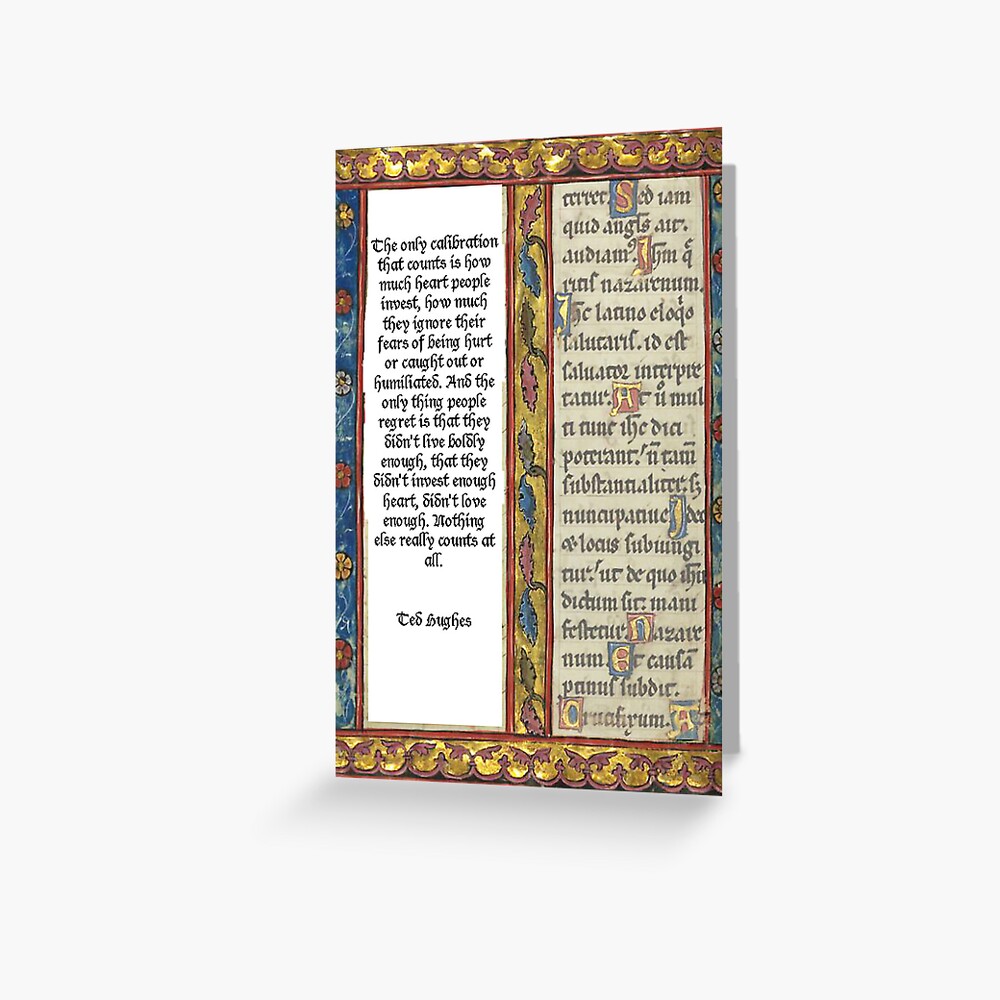 The only calibration
that counts is how
much heart people
invest, how much
they ignore their
fears of being hurt
or caught out or
humiliated. And the
only thing people
regret is that they
didn't live boldly
enough, that they
didn't invest enough
heart, didn't love
enough. Nothing
else really counts at
all.
Ted Hughes
terret. Sed iam
quid angl̅s ait.
audiam᷒. Ihm̅ q̅
ritis nazarenum.
Ihc̅ latino eloq̇o
salutaris. id est
saluator interpre
tatur. At u̅ mul
ti tunc ihc̅ dici
poterant. n̅ tam̅
substantialiter. s;
nuncupatiue. Ideo
& locus subiungi
tur. ut de quo ihu̅
dictum sit. mani
festetur. Nazare
num. Et causa̅
ptinus subdit.
Crucifixum. A